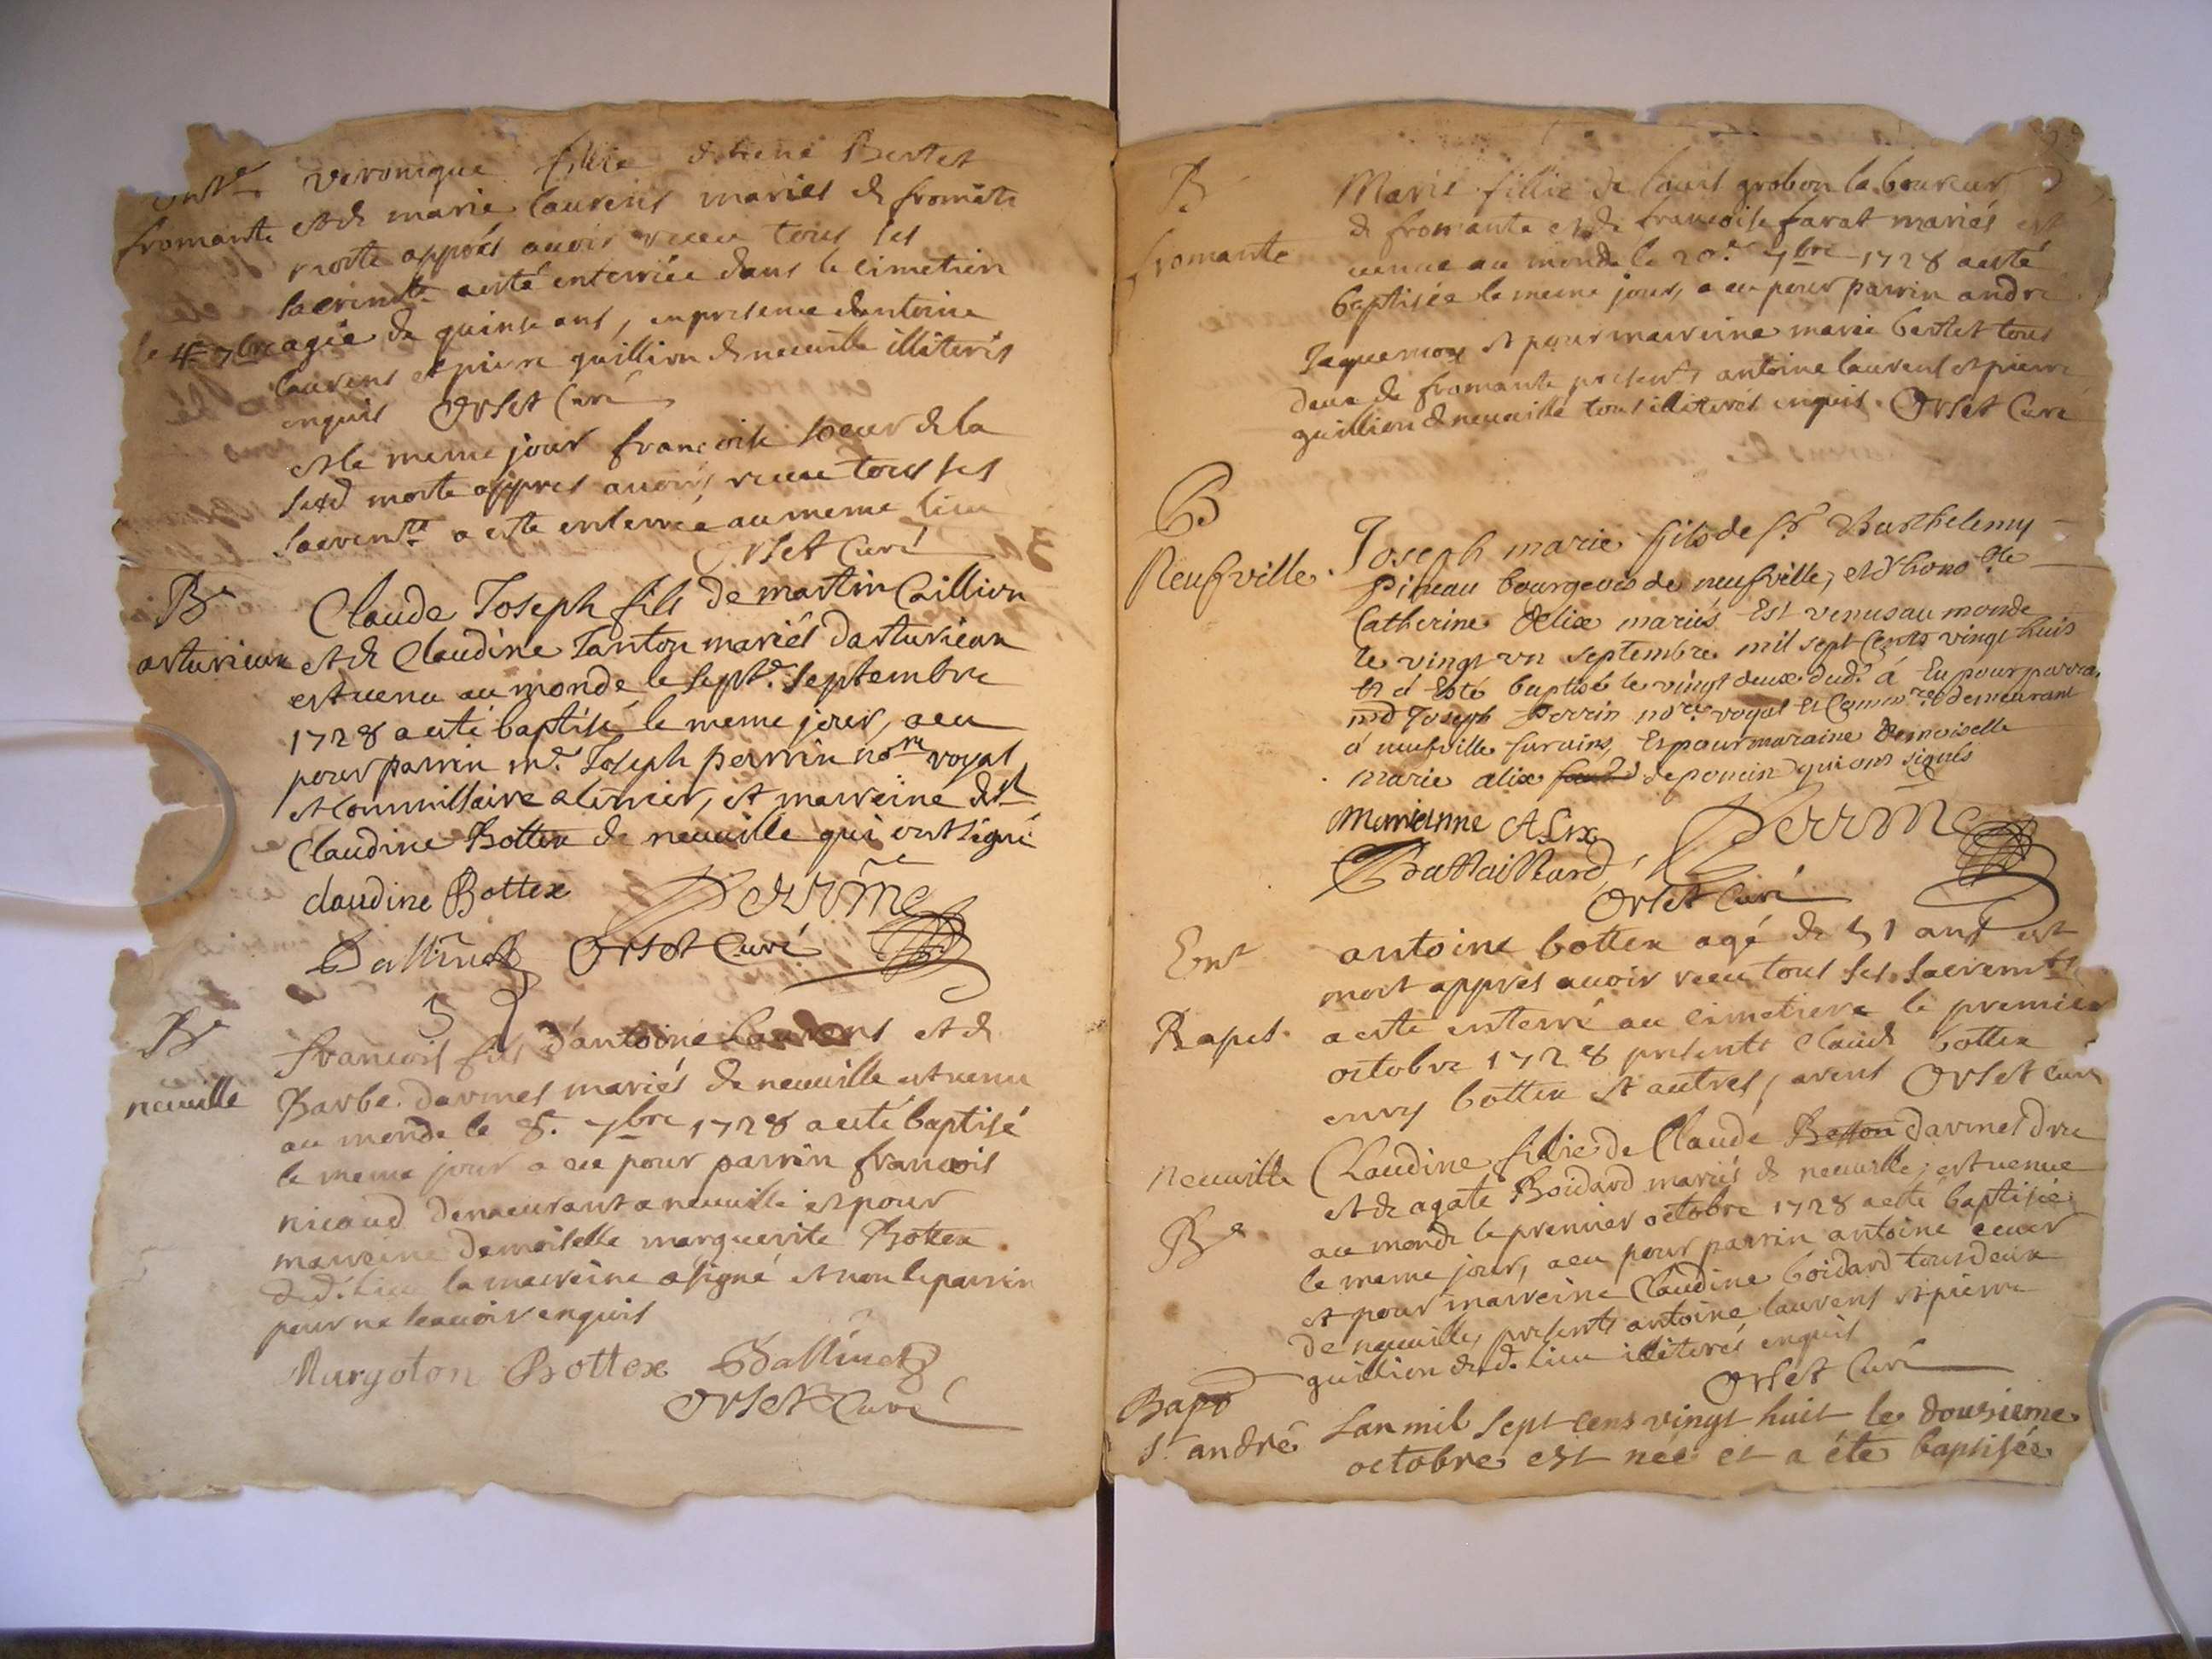 Entr veronique fillie de Bertet
fromante et de marie laurens mariés de fromāte
morte appres avoir receu tous ses
sacremts a esté enterrée dans le cimetiere
le 4e 7bre agée de quinse ans, en presence dantoine
laurens et pierre guillion de neuville illiterés
enquis Orset Curé
et le meme jour francoise soeur de la
susd morte appres avoir receu tous ses
sacremts a este enterrée au meme lieu
Orset Curé
Be Claude Joseph fils de martin Caillion
arturieux et de Claudine Tanton mariés darturieux
est venu au monde le sept.e septembre
1728 a esté baptisé le meme jour, a eu
pour parrin mr. Joseph perrin nore royal
et Commissaire a terrier, et marreine dlle
Claudine Bottex de neuville qui ont signé
claudine Bottex Perrin
Orset Curé
Be francois fils d'antoine Laurens et de
neuville Barbe darmes mariés de neuville est venu
au monde le 8. 7bre 1728 a esté baptisé
le meme jour a eu pour parrin francois
nicaud demeurant a neuville et pour
marreine demoiselle marguerite Bottex
dud. lieu la marreine a signé et non le parrin
pour ne scavoir enquis
Margoton Bottex
Orset Curé
B Marie fillie de louis grobon laboureur
de fromante et de francoise farat mariés est
fromante venue au monde le 20e 7bre 1728 a esté
baptisée le meme jour, a eu pour parrin andre
Jaquemox et pour marreine marie bertet tous
deux de fromante presents antoine laurens et pierre
guillion de neuville tous illiterés enquis. Orset Curé
B
Neufville. Joseph marie fils de sr. Barthelemy
Pineau bourgeois de neufville, et d'hono.ble
Catherine Delix mariés Est venus au monde
le vingt un septembre mil sept Cents vingt huis
Et à Esté baptisé le vingt deux dud. à Eu pour parrai
md Joseph Perrin nore royal Et Commre demeurant
à neufville surains, Et pour maraine Demoiselle
marie alix de poncin qui ont signés
Marrianne Alix Perrin
Battaillard
Orset Curé
Ent antoine bottex agé de 51 ans est
mort appres avoir receu tous ses sacremts
Rapes. a este enterré au cimetiere le premier
octobre 1728 presents Claude bottex
bottex et autres, Orset Curé
neuville Claudine fillie de Claude Besson darmes dru
et de agate Boidard mariés de neuville, est venue
Be au monde le premier octobre 1728 a esté baptisée
le meme jour, a eu pour parrin antoine
et pour marreine Claudine boidard tous deux
de neuville, presents antoine laurens et pierre
guillion dud. lieu illiterés enquis
Orset Curé
Bapt
St andré Lan mil sept cens vingt huit le dousieme
octobre est née et a été baptisée